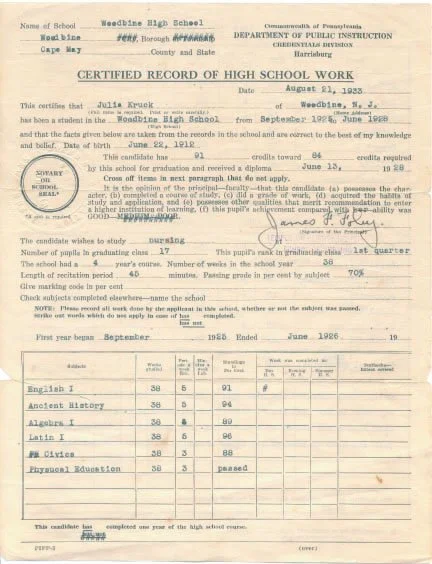 Name of School Woodbine High School
Commonwealth of Pennsylvania
DEPARTMENT OF PUBLIC INSTRUCTION
CREDENTIALS DIVISION
Harrisburg
Woodbine Borough
Cape May County and State
CERTIFIED RECORD OF HIGH SCHOOL WORK
Date August 21, 1933
This certifies that Julia Kruck of Woodbine, N. J.
(Full name is required. Print or write carefully) (Home Address)
has been a student in the Woodbine High School from September 1925, June 1928
(High School)
and that the facts given below are taken from the records in the school and are correct to the best of my knowledge
and belief. Date of birth June 22, 1912
This candidate has 91 credits toward 84 credits required
by this school for graduation and received a diploma June 13, 1928
Cross off items in next paragraph that do not apply.
NOTARY
OR
SCHOOL
SEAL*
*A seal is required
It is the opinion of the principal—faculty—that this candidate (a) possesses the char-
acter, (b) completed a course of study, (c) did a grade of work, (d) acquired the habits of
study and application, and (e) possesses other qualities that merit recommendation to enter
a higher institution of learning, (f) this pupil's achievement compared with her ability was
GOOD—MEDIUM—POOR.
James F. Foley.
(Signature of the Principal)
The candidate wishes to study nursing at
Number of pupils in graduating class 17 This pupil's rank in graduating class 1st quarter
The school had a 4 year's course. Number of weeks in the school year 38
Length of recitation period 45 minutes. Passing grade in per cent by subject 70%
Give marking code in per cent
Check subjects completed elsewhere—name the school
NOTE: Please record all work done by the applicant in this school, whether or not the subject was passed.
Strike out words which do not apply in case of has completed.
has not
First year began September 1925 Ended June 1926 19
Subjects
Weeks studied
Standings in Per Cent
Week was completed in:
Day H. S.
Evening H. S.
Summer H. S.
English I 38 5 91 #
Ancient History 38 5 94
Algebra I 38 5 89
Latin I 38 5 96
Civics 38 3 88
Physucal Education 38 3 passed
This candidate has completed one year of the high school course.
(over)